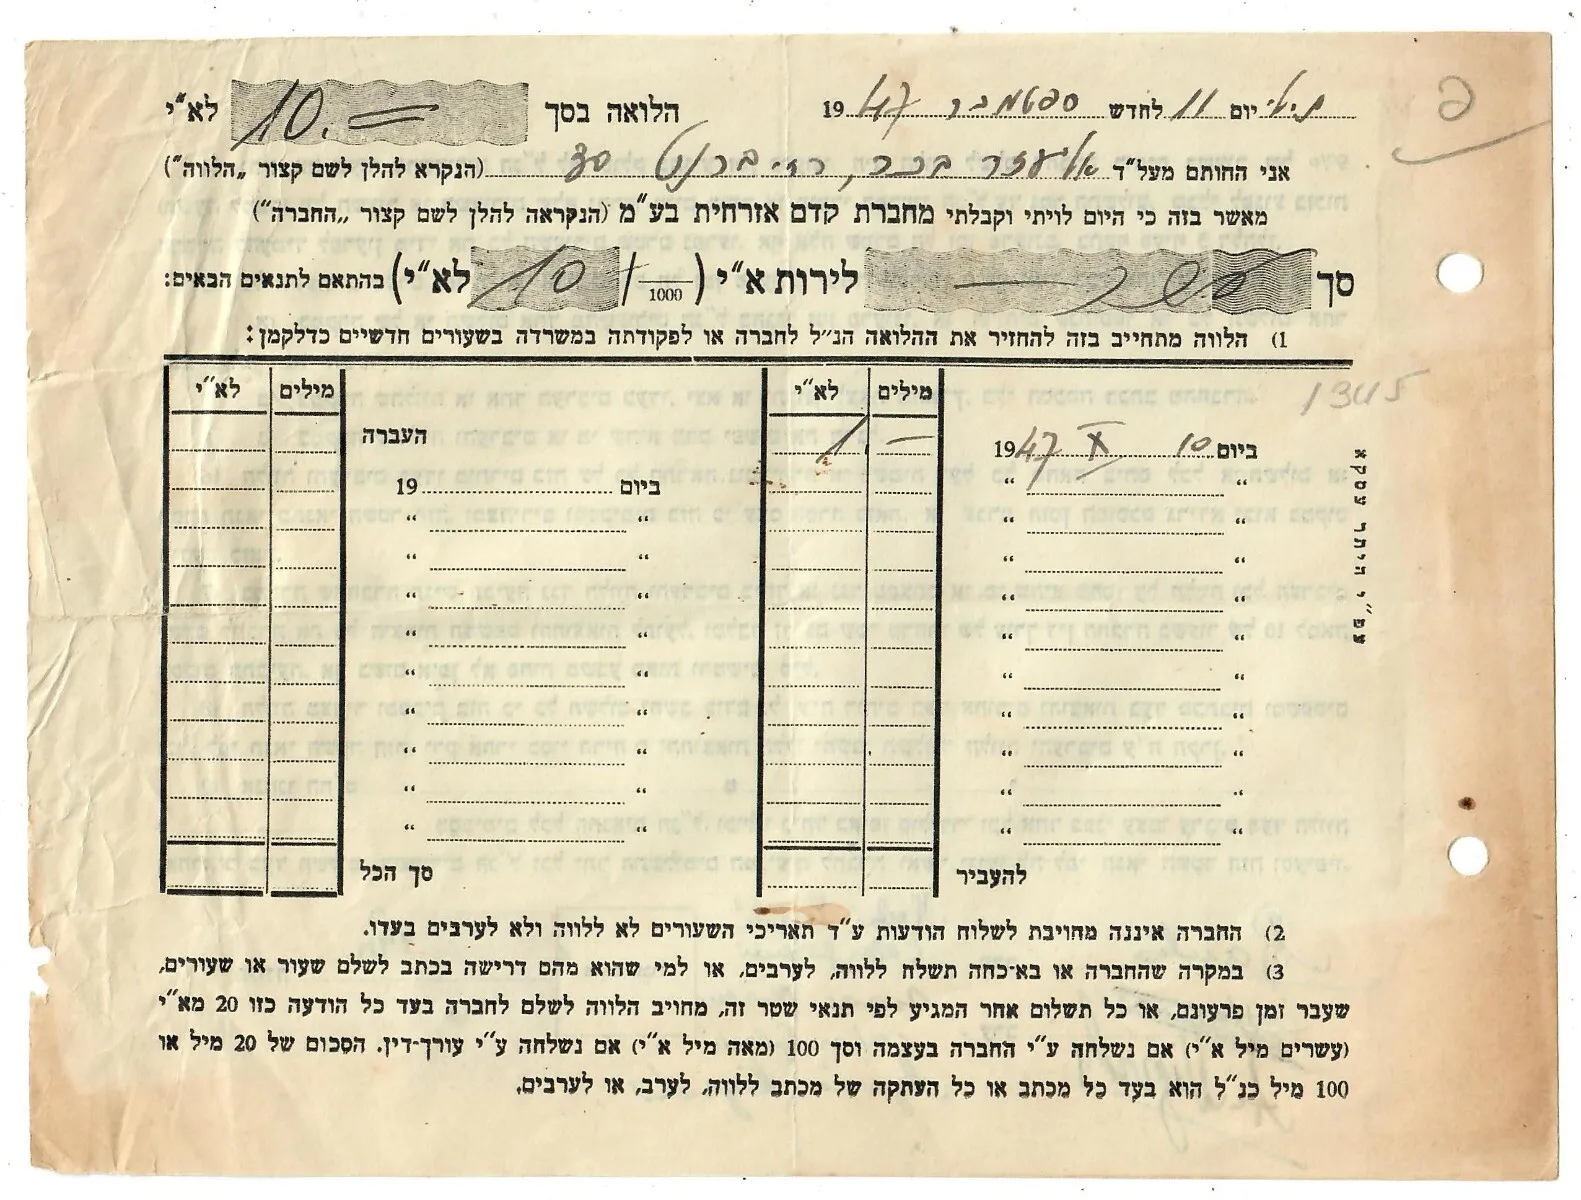 ת״א יום 11 לחדש ספטמבר 1947 הלואה בסך 10.= לא״י
אני החותם מעל״ד אליעזר בכר, רח׳ ברנט 30 (הנקרא להלן לשם קצור „הלווה״)
מאשר בזה כי היום לויתי וקבלתי מחברת קדם אזרחית בע״מ (הנקראה להלן לשם קצור „החברה״)
סך עשר — לירות א״י (10 /1000 לא״י) בהתאם לתנאים הבאים:
1) הלווה מתחייב בזה להחזיר את ההלואה הנ״ל לחברה או לפקודתה במשרדה בשעורים חדשיים כדלקמן:
מילים לא״י מילים לא״י
ביום 10 X 1947 — 1 העברה
״ ״ ביום 19
״ ״ ״ ״
״ ״ ״ ״
״ ״ ״ ״
״ ״ ״ ״
״ ״ ״ ״
״ ״ ״ ״
״ ״ ״ ״
״ ״ ״ ״
״ ״ ״ ״
להעביר סך הכל
1345
עפ״י היתר עסקא
2) החברה איננה מחויבת לשלוח הודעות ע״ד תאריכי השעורים לא ללווה ולא לערבים בעדו.
3) במקרה שהחברה או בא־כחה תשלח ללווה, לערבים, או למי שהוא מהם דרישה בכתב לשלם שעור או שעורים,
שעבר זמן פרעונם, או כל תשלום אחר המגיע לפי תנאי שטר זה, מחויב הלווה לשלם לחברה בעד כל הודעה כזו 20 מא״י
(עשרים מיל א״י) אם נשלחה ע״י החברה בעצמה וסך 100 (מאה מיל א״י) אם נשלחה ע״י עורך־דין. הסכום של 20 מיל או
100 מיל כנ״ל הוא בעד כל מכתב או כל העתקה של מכתב ללווה, לערב, או לערבים.